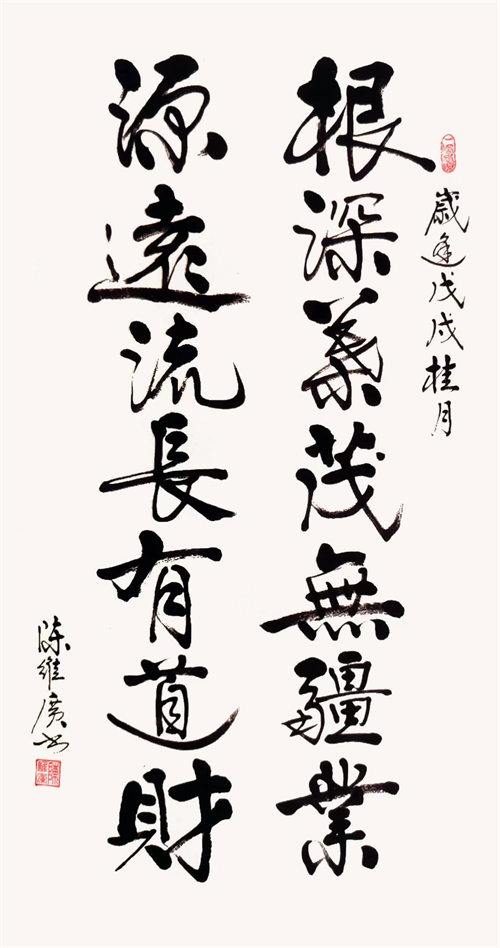 歲逢戊戌桂月
根深葉茂無疆業
源遠流長有道財
陳維廣書